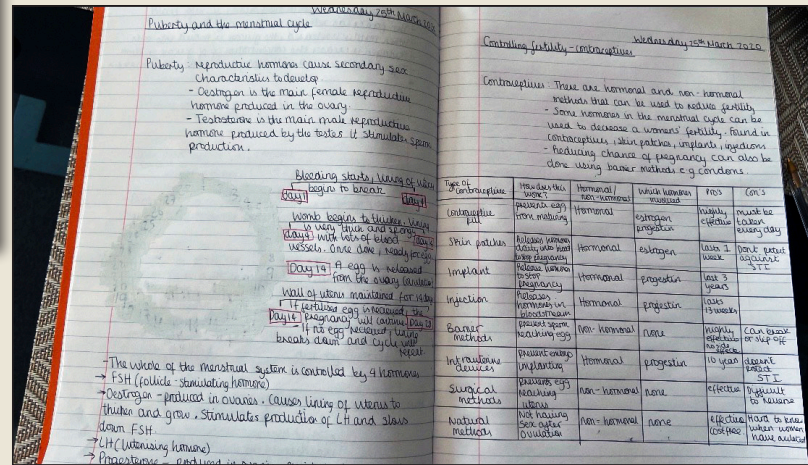 Wednesday 25th March 2020
Puberty and the menstrual cycle
Puberty: reproductive hormones cause secondary sex
characteristics to develop
- Oestrogen is the main female reproductive
hormone produced in the ovary.
- Testosterone is the main male reproductive
hormone produced by the testes it stimulates sperm
production.
Bleeding starts, lining of uterus
begins to break
day 1
Womb begins to thicken. Lining
is very thick and spongy
day 4 with lots of blood
vessels. Once done, ready for egg
Day 14 A egg is released
from the ovary (ovulation)
Wall of uterus maintained for 14 days
If fertilised egg is recieved, the
Day 14 pregnancy will continue. Day 28
- If no egg recieved, lining
breaks down and cycle will
repeat.
- The whole of the menstrual system is controlled by 4 hormones
→ FSH (follicle-stimulating hormone)
→ Oestrogen - produced in ovaries. Causes lining of uterus to
thicken and grow. Stimulates production of LH and slows
down FSH.
→ LH (lutenising hormone)
→ Progesterone - produced in
Wednesday 25th March 2020
Controlling fertility - contraceptives
Contraceptives: There are hormonal and non-hormonal
methods that can be used to reduce fertility
- Some hormones in the menstrual cycle can be
used to decrease a womens' fertility. Found in
contraceptives, skin patches, implants, injections
- Reducing chance of pregnancy can also be
done using barrier methods e.g condoms.
Type of contraceptive How does this work? Hormonal / non-hormonal Which hormones involved Pro's Con's
Contraceptive pill prevents egg from maturing Hormonal estrogen progestin highly effective must be taken every day
Skin patches Releases hormones into blood to stop pregnancy Hormonal estrogen lasts 1 week Dont protect against STI
Implant Release hormones to stop pregnancy Hormonal progestin last 3 years
Injection Releases hormones in bloodstream Hormonal progestin lasts 13 weeks
Barrier methods prevent sperm reaching egg non-hormonal none highly effective no side effects Can break or slip off
Intrauterine devices prevent embryo implanting Hormonal progestin 10 years doesnt protect STI
Surgical methods prevents egg reaching uterus non-hormonal none effective Difficult to reverse
Natural methods Not having sex after ovulation non-hormonal none effective cost free Hard to know when women have ovulated